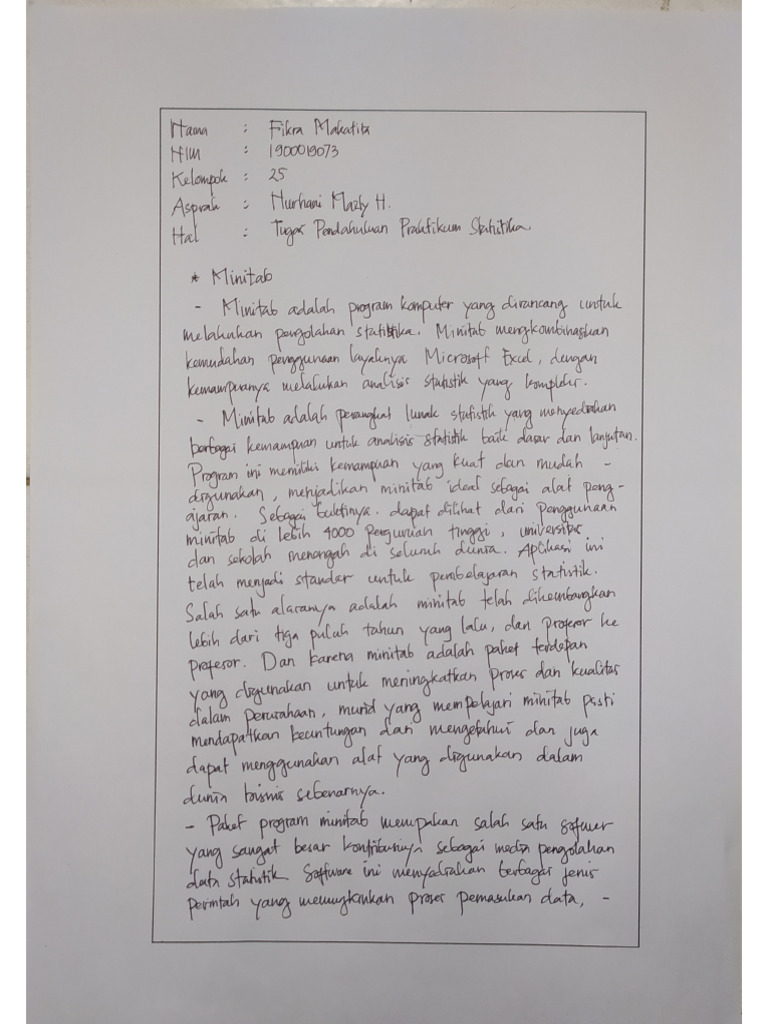 Nama : Fikra Makatita
NIM : 1900019073
Kelompok : 25
Asprak : Nurhani Mazly H.
Hal : Tugas Pendahuluan Praktikum Statistika
* Minitab
- Minitab adalah program komputer yang dirancang untuk
melakukan pengolahan statistika. Minitab mengkombinasikan
kemudahan penggunaan layaknya Microsoft Excel, dengan
kemampuanya melakukan analisis statistik yang kompleks.
- Minitab adalah perangkat lunak statistik yang menyediakan
berbagai kemampuan untuk analisis statistik baik dasar dan lanjutan.
Program ini memiliki kemampuan yang kuat dan mudah -
digunakan, menjadikan minitab ideal sebagai alat peng-
ajaran. Sebagai buktinya. dapat dilihat dari penggunaan
minitab di lebih 4000 Perguruan tinggi, universitas
dan sekolah menengah di seluruh dunia. Aplikasi ini
telah menjadi standar untuk pembelajaran statistik.
Salah satu alasanya adalah minitab telah dikembangkan
lebih dari tiga puluh tahun yang lalu, dari profesor ke
profesor. Dan karena minitab adalah paket terdepan
yang digunakan untuk meningkatkan proses dan kualitas
dalam perusahaan, murid yang mempelajari minitab pasti
mendapatkan keuntungan dari mengetahui dan juga
dapat menggunakan alat yang digunakan dalam
dunia bisnis sebenarnya.
- Paket program minitab merupakan salah satu softwer
yang sangat besar kontribusinya sebagai media pengolahan
data statistik. Software ini menyediakan berbagai jenis
perintah yang memungkinkan proses pemasukan data, -